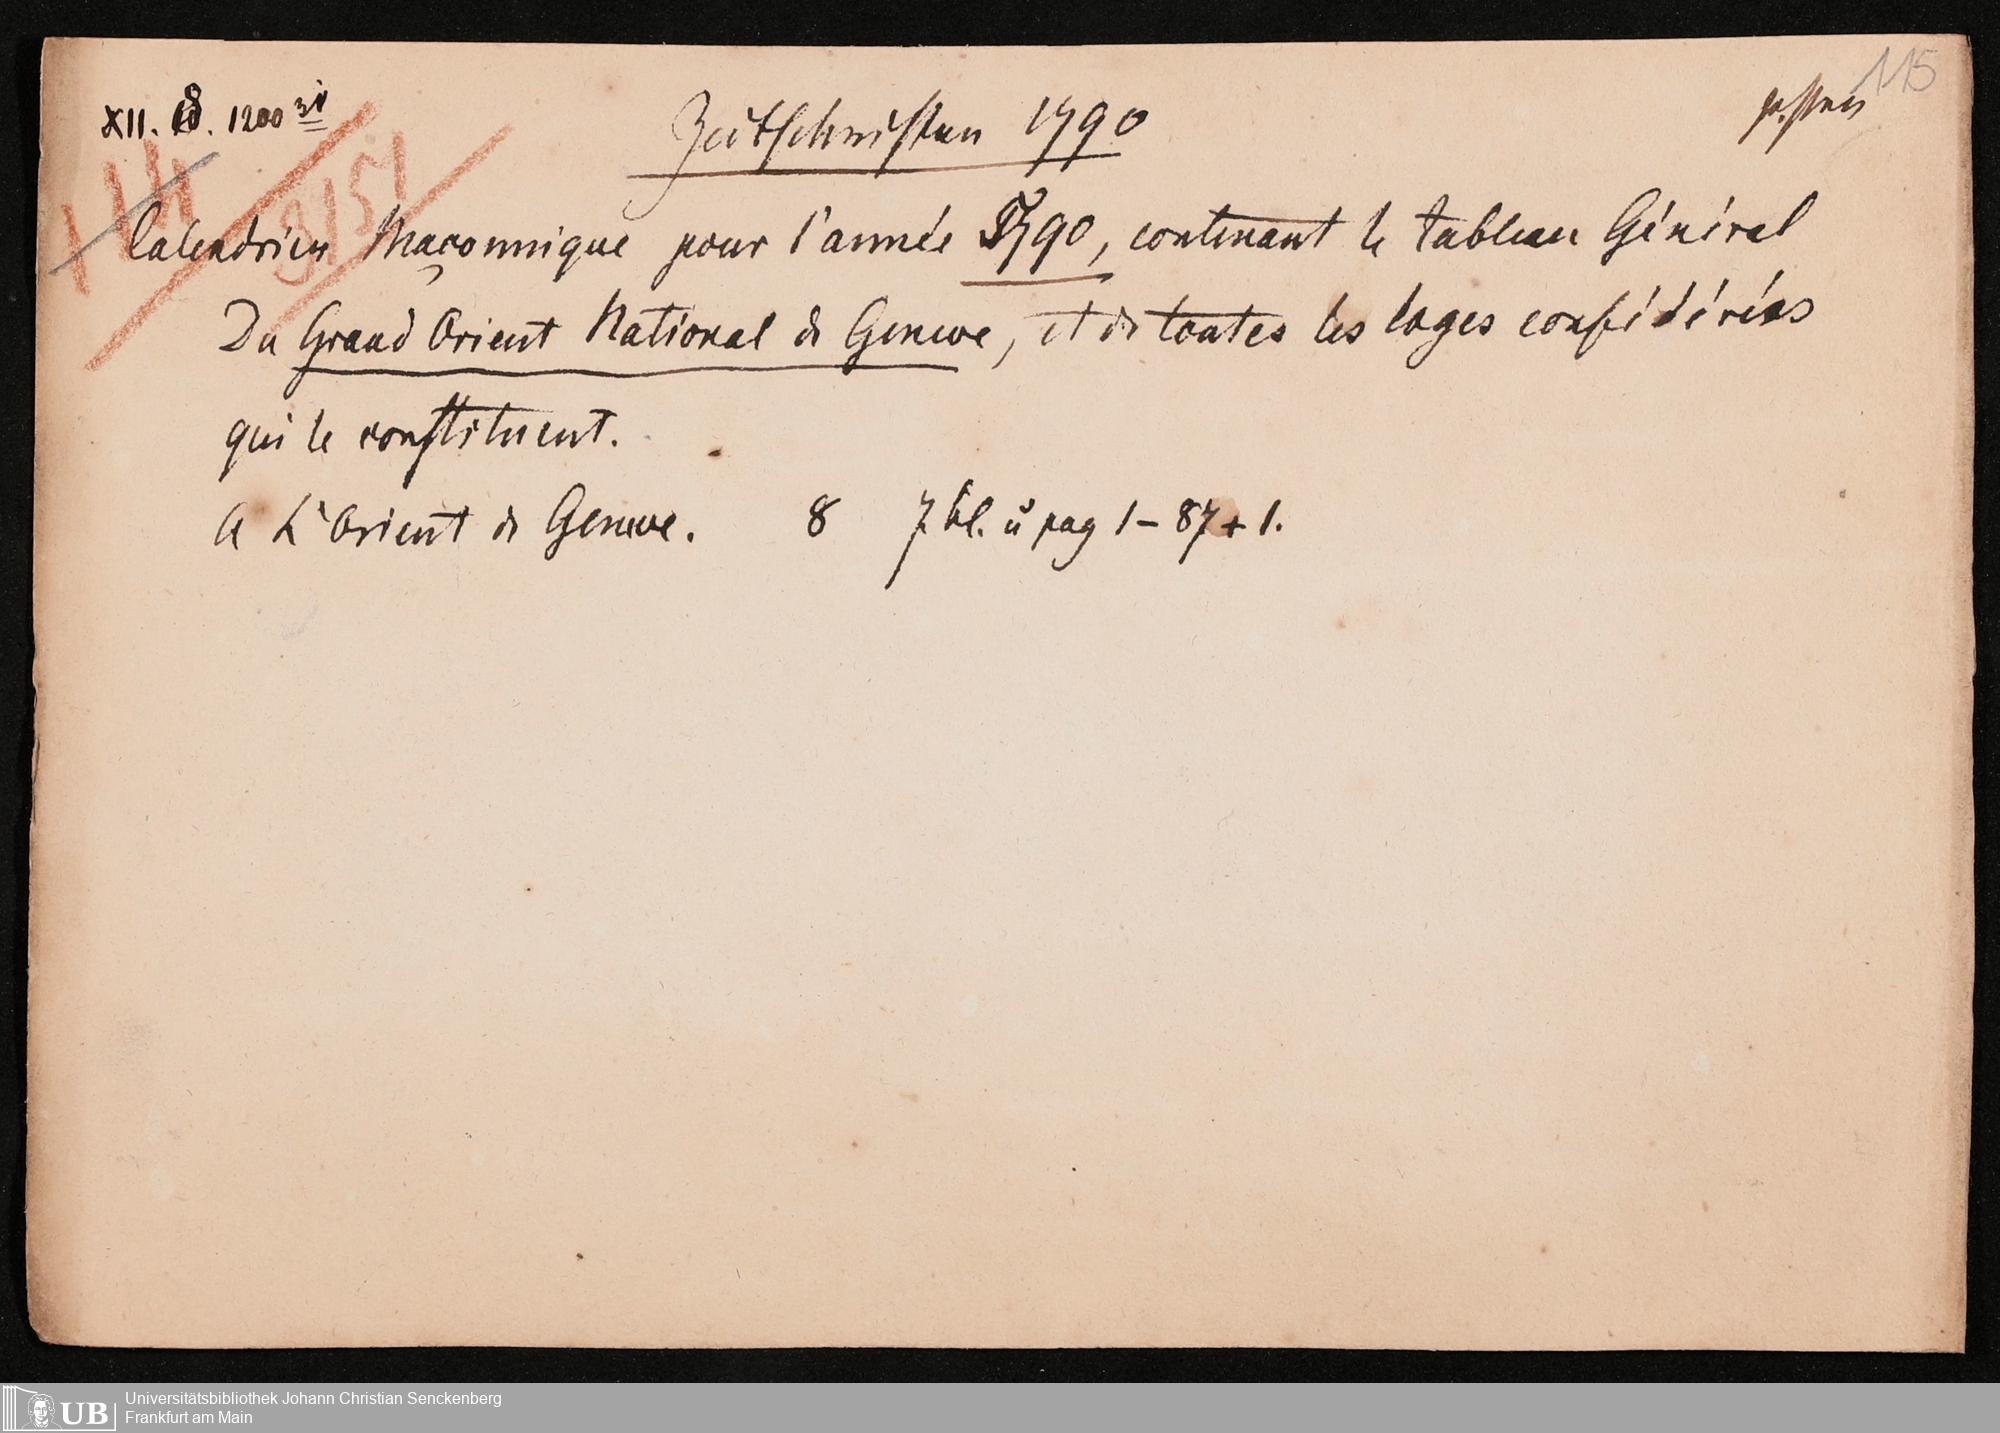 115
XII. 8. 1200
Zeitschriften 1790
3151
Calendrier Maçonnique pour l'année 1790, contenant le tableau Général
Du Grand Orient National de Geneve, et de toutes les loges confédérées
qui le constituent.
A L'Orient de Geneve. 8 7 bl. u pag 1-87+1.
Universitätsbibliothek Johann Christian Senckenberg
Frankfurt am Main
UB